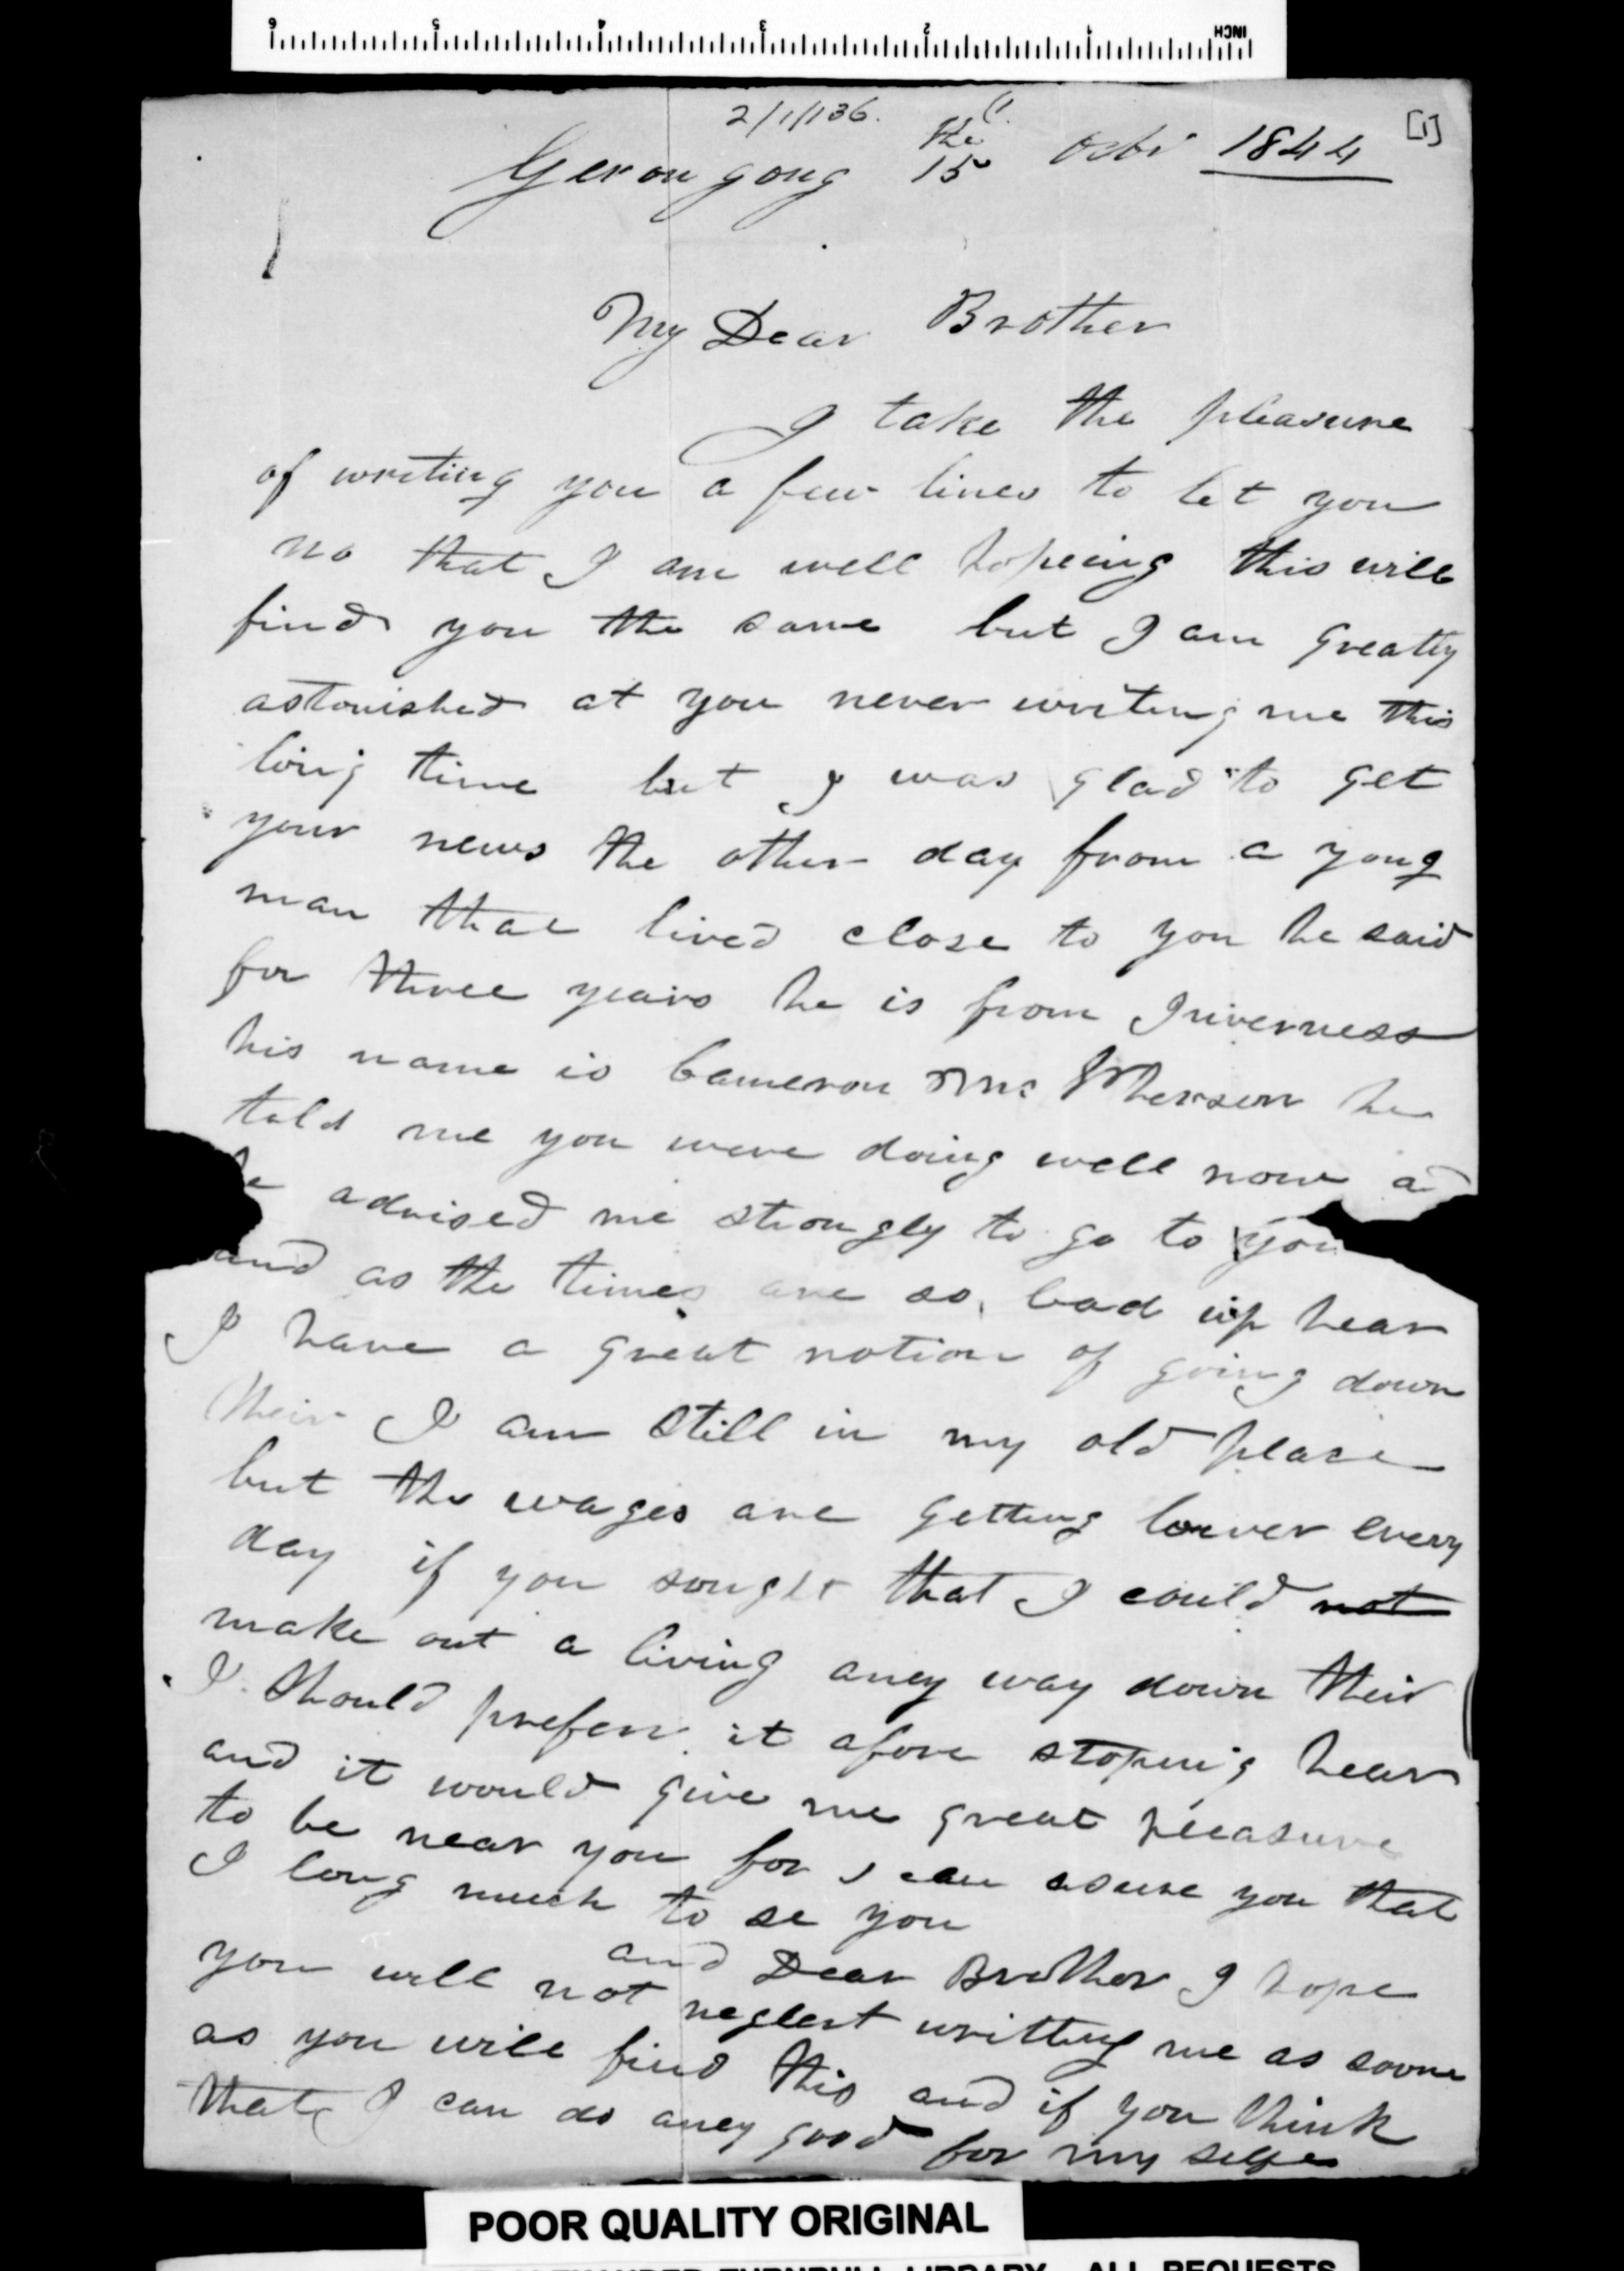 INCH 1 2 3 4 5 6
2/1/136.
[1]
Gerongong the 15 Octbr 1844
My Dear Brother
I take the pleasure
of writing you a few lines to let you
no that I am well hopeing this will
find you the same but I am greatly
astonished at you never writeng me this
long time but I was glad to get
your news the other day from a yong
man that lived close to you he said
for three years he is from Inverness
his name is Cameron Mc Pherson he
told me you were doing well now a
he advised me strongly to go to you
and as the times are so bad up hear
I have a great notion of going down
their I am still in my old place
but the wages are getting lower every
day if you sought that I could not
make out a living aney way down their
I should preferr it afore stoping hear
and it would give me great pleasure
to be near you for I can asure you that
I long much to se you
and Dear Brother I hope
you will not neglect writting me as soone
as you will find this and if you think
that I can do aney good for my selfe
POOR QUALITY ORIGINAL
ALEXANDER TURNBULL LIBRARY ALL REQUESTS